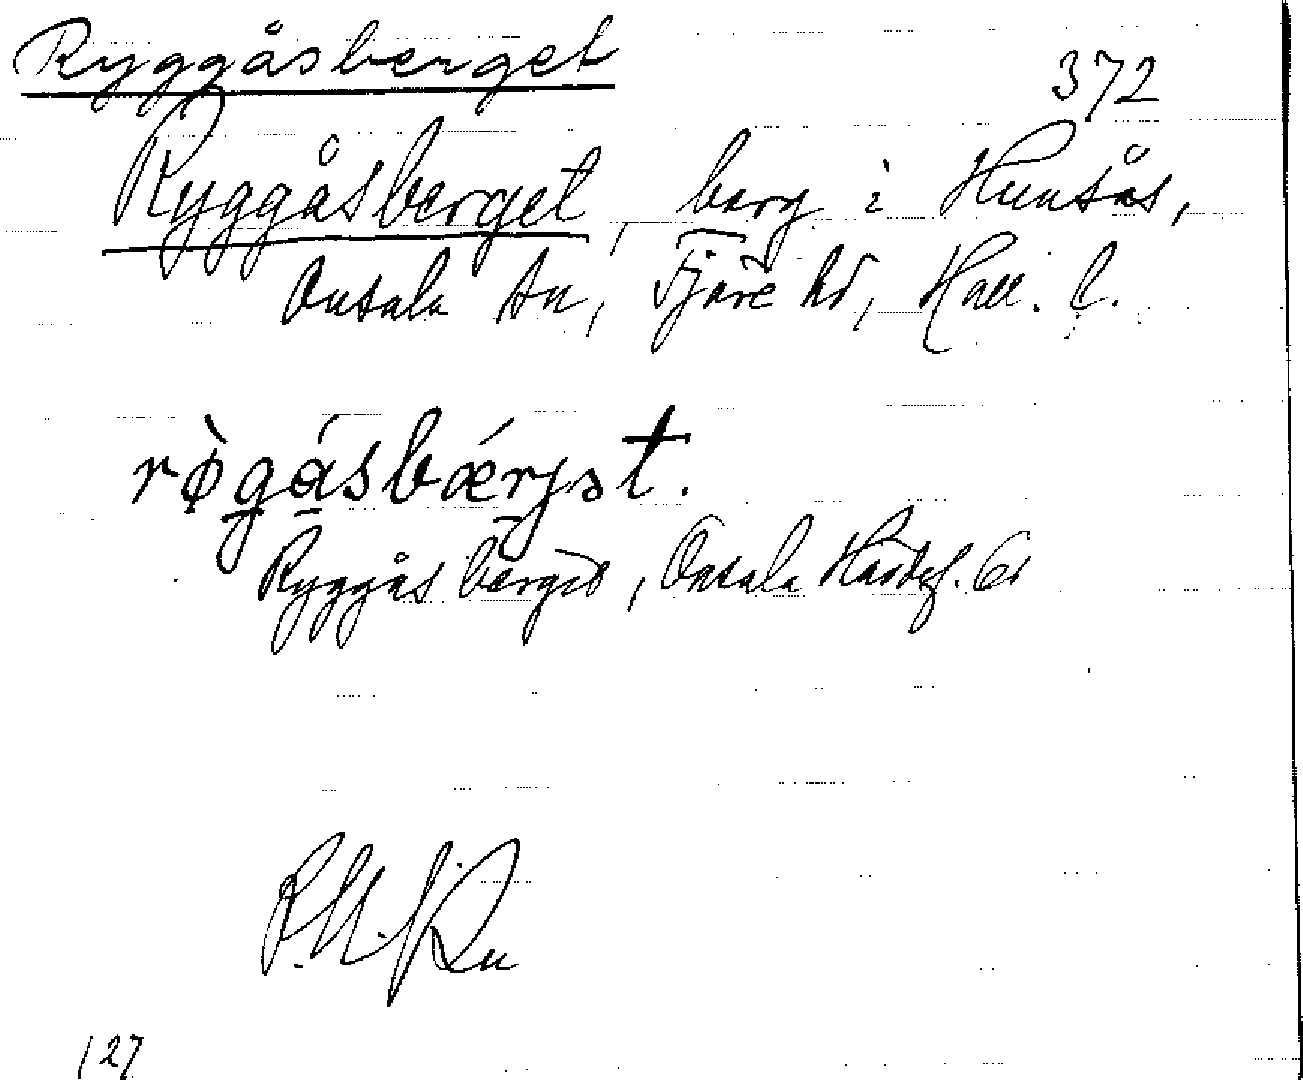 Ryggåsberget
372
Ryggåsberget, berg i Hunsås,
Onsala sn, Fjäre hd, Hall. l.
rø̀gåsbǽrjət.
Ryggåsberget, Onsala
127